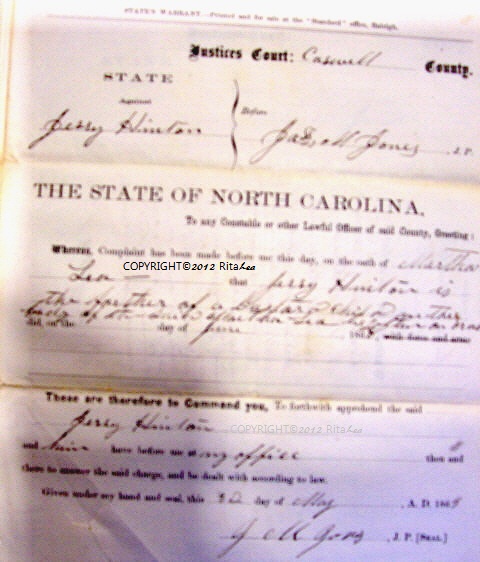 STATE'S WARRANT.—Printed and for sale at the "Standard" office, Raleigh.
Justices Court: Caswell County.
STATE
Against
Jerry Hinton
Before
Jones, J.P.
THE STATE OF NORTH CAROLINA,
To any Constable or other Lawful Officer of said County, Greeting:
Whereas, Complaint has been made before me this day, on the oath of Martha
Lea — that Jerry Hinton is
COPYRIGHT©2012 RitaLea
the of a bastard child on the
body of the said Martha Lea
did, on the day of June 186 with force and arms
These are therefore to Command you, To forthwith apprehend the said
Jerry Hinton
COPYRIGHT©2012 RitaLea
and him have before me at my office then and
there to answer the said charge, and be dealt with according to law.
Given under my hand and seal, this day of May, A. D. 186
J M Jones, J. P. [SEAL.]